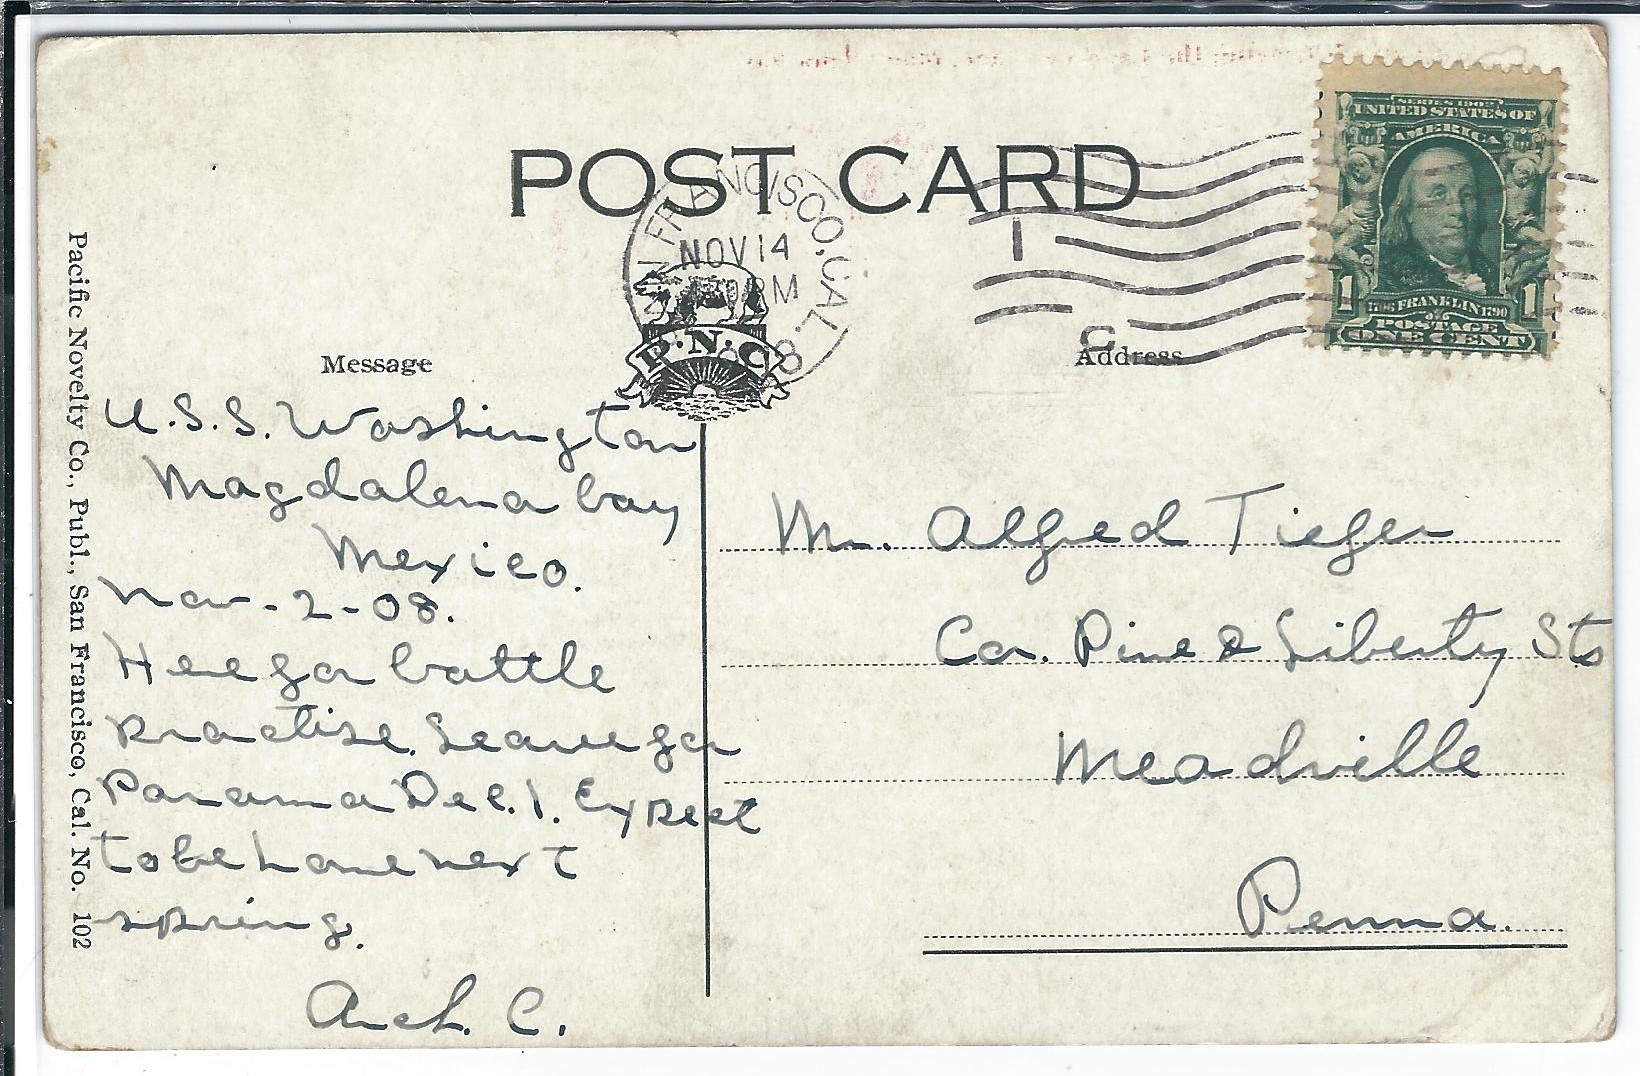 POST CARD
SAN FRANCISCO, CAL.
NOV 14
PM
SERIES 1902
UNITED STATES OF
AMERICA
1 1706 FRANKLIN 1790 1
POSTAGE
ONE CENT
I
C
P.N.C.
Message
Address
U.S.S. Washington
Magdalena bay
Mexico.
Nov-2-08.
Here for battle
practise. Leave for
Panama Dec. 1. Expect
to be home next
spring.
Arch. C.
Mr. Alfred Tiefer
Cor. Pine & Liberty Sts
Meadville
Penna.
Pacific Novelty Co., Publ., San Francisco, Cal. No. 102